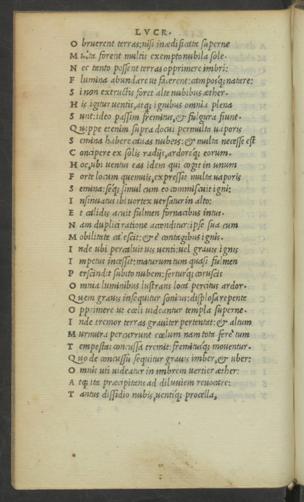 LVCR.
O bruerent terras; nisi inædificata superne
M ulta forent multis exempto nubila sole.
N ec tanto possent terras opprimere imbri;
F lumina abundare ut facerent; camposq; natare;
S i non extructis foret alte nubibus æther.
H is igitur uentis, atq; ignibus omnia plena
S unt: ideo passim fremitus, & fulgura fiunt.
Q uippe etenim supra docui permulta uaporis
S emina habere cauas nubes; & multa necesse est
C oncipere ex solis radijs, ardoreq; eorum.
H oc, ubi uentus eas idem qui cogit in unum
F orte locum quemuis, expressit multa uaporis
S emina: seq; simul cum eo commiscuit igni:
I nsinuatus ibi uortex uersatur in alto:
E t calidis acuit fulmen fornacibus intus.
N am duplici ratione accenditur: ipse sua cum
M obilitate calescit: & e contagibus ignis.
I nde ubi percaluit uis uenti: uel grauis ignis
I mpetus incessit: maturum tum quasi fulmen
P erscindit subito nubem: ferturq; coruscis
O mnia luminibus lustrans loca percitus ardor.
Q uem grauis insequitur sonitus: displosa repente
O pprimere ut cœli uideantur templa superne.
I nde tremor terras grauiter pertentat: & altum
M urmura percurrunt cœlum nam tota fere tum
T empestas concussa tremit: fremitusq; mouentur.
Q uo de concussu sequitur grauis imber, & uber:
O mnis uti uideatur in imbrem uertier æther:
A tq; ita præcipitans ad diluuiem reuocare:
T antus dissidio nubis, uentiq; procella,